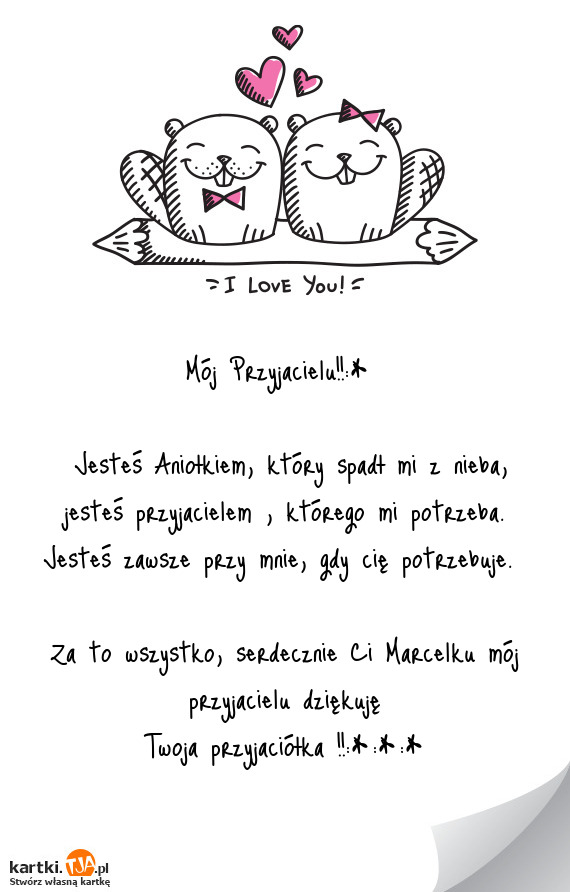 I LOVE YOU!
Mój Przyjacielu!!:*
Jesteś Aniołkiem, który spadł mi z nieba,
jesteś przyjacielem , którego mi potrzeba.
Jesteś zawsze przy mnie, gdy cię potrzebuje.
Za to wszystko, serdecznie Ci Marcelku mój
przyjacielu dziękuję
Twoja przyjaciółka !!:* :* :*
kartki.TJA.pl
Stwórz własną kartkę